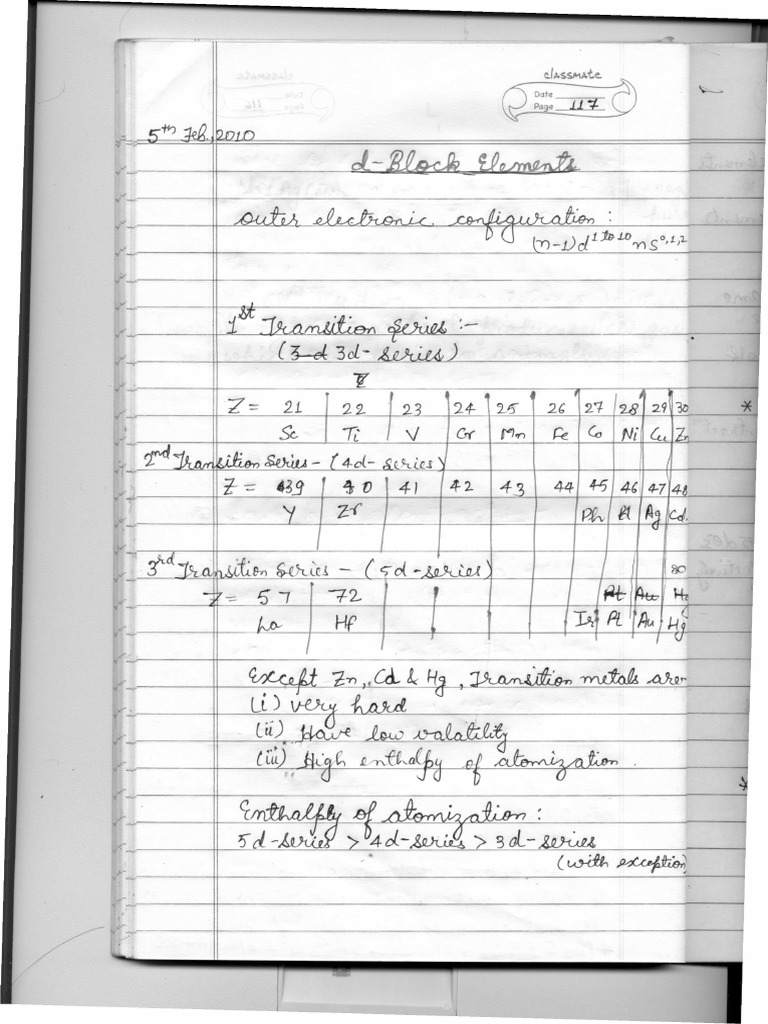 classmate
Date
Page 117
5th Feb., 2010
d-Block Elements
outer electronic configuration :
(n-1)d1 to 10 ns0,1,2
1st Transition Series :-
(3-d 3d- series)
Z = 21 22 23 24 25 26 27 28 29 30 *
Sc Ti V Cr Mn Fe Co Ni Cu Zn
2nd Transition Series - (4d- series)
Z = 39 40 41 42 43 44 45 46 47 48
Y Zr Rh Pd Ag Cd
3rd Transition Series - (5d-series) 80
Z = 57 72 Pt Au Hg
La Hf Ir Pt Au Hg
Except Zn, Cd & Hg, Transition metals are
(i) very hard
(ii) Have low valatility
(iii) High enthalpy of atomization.
Enthalply of atomization :
5d-series > 4d-series > 3d-series
(with exception